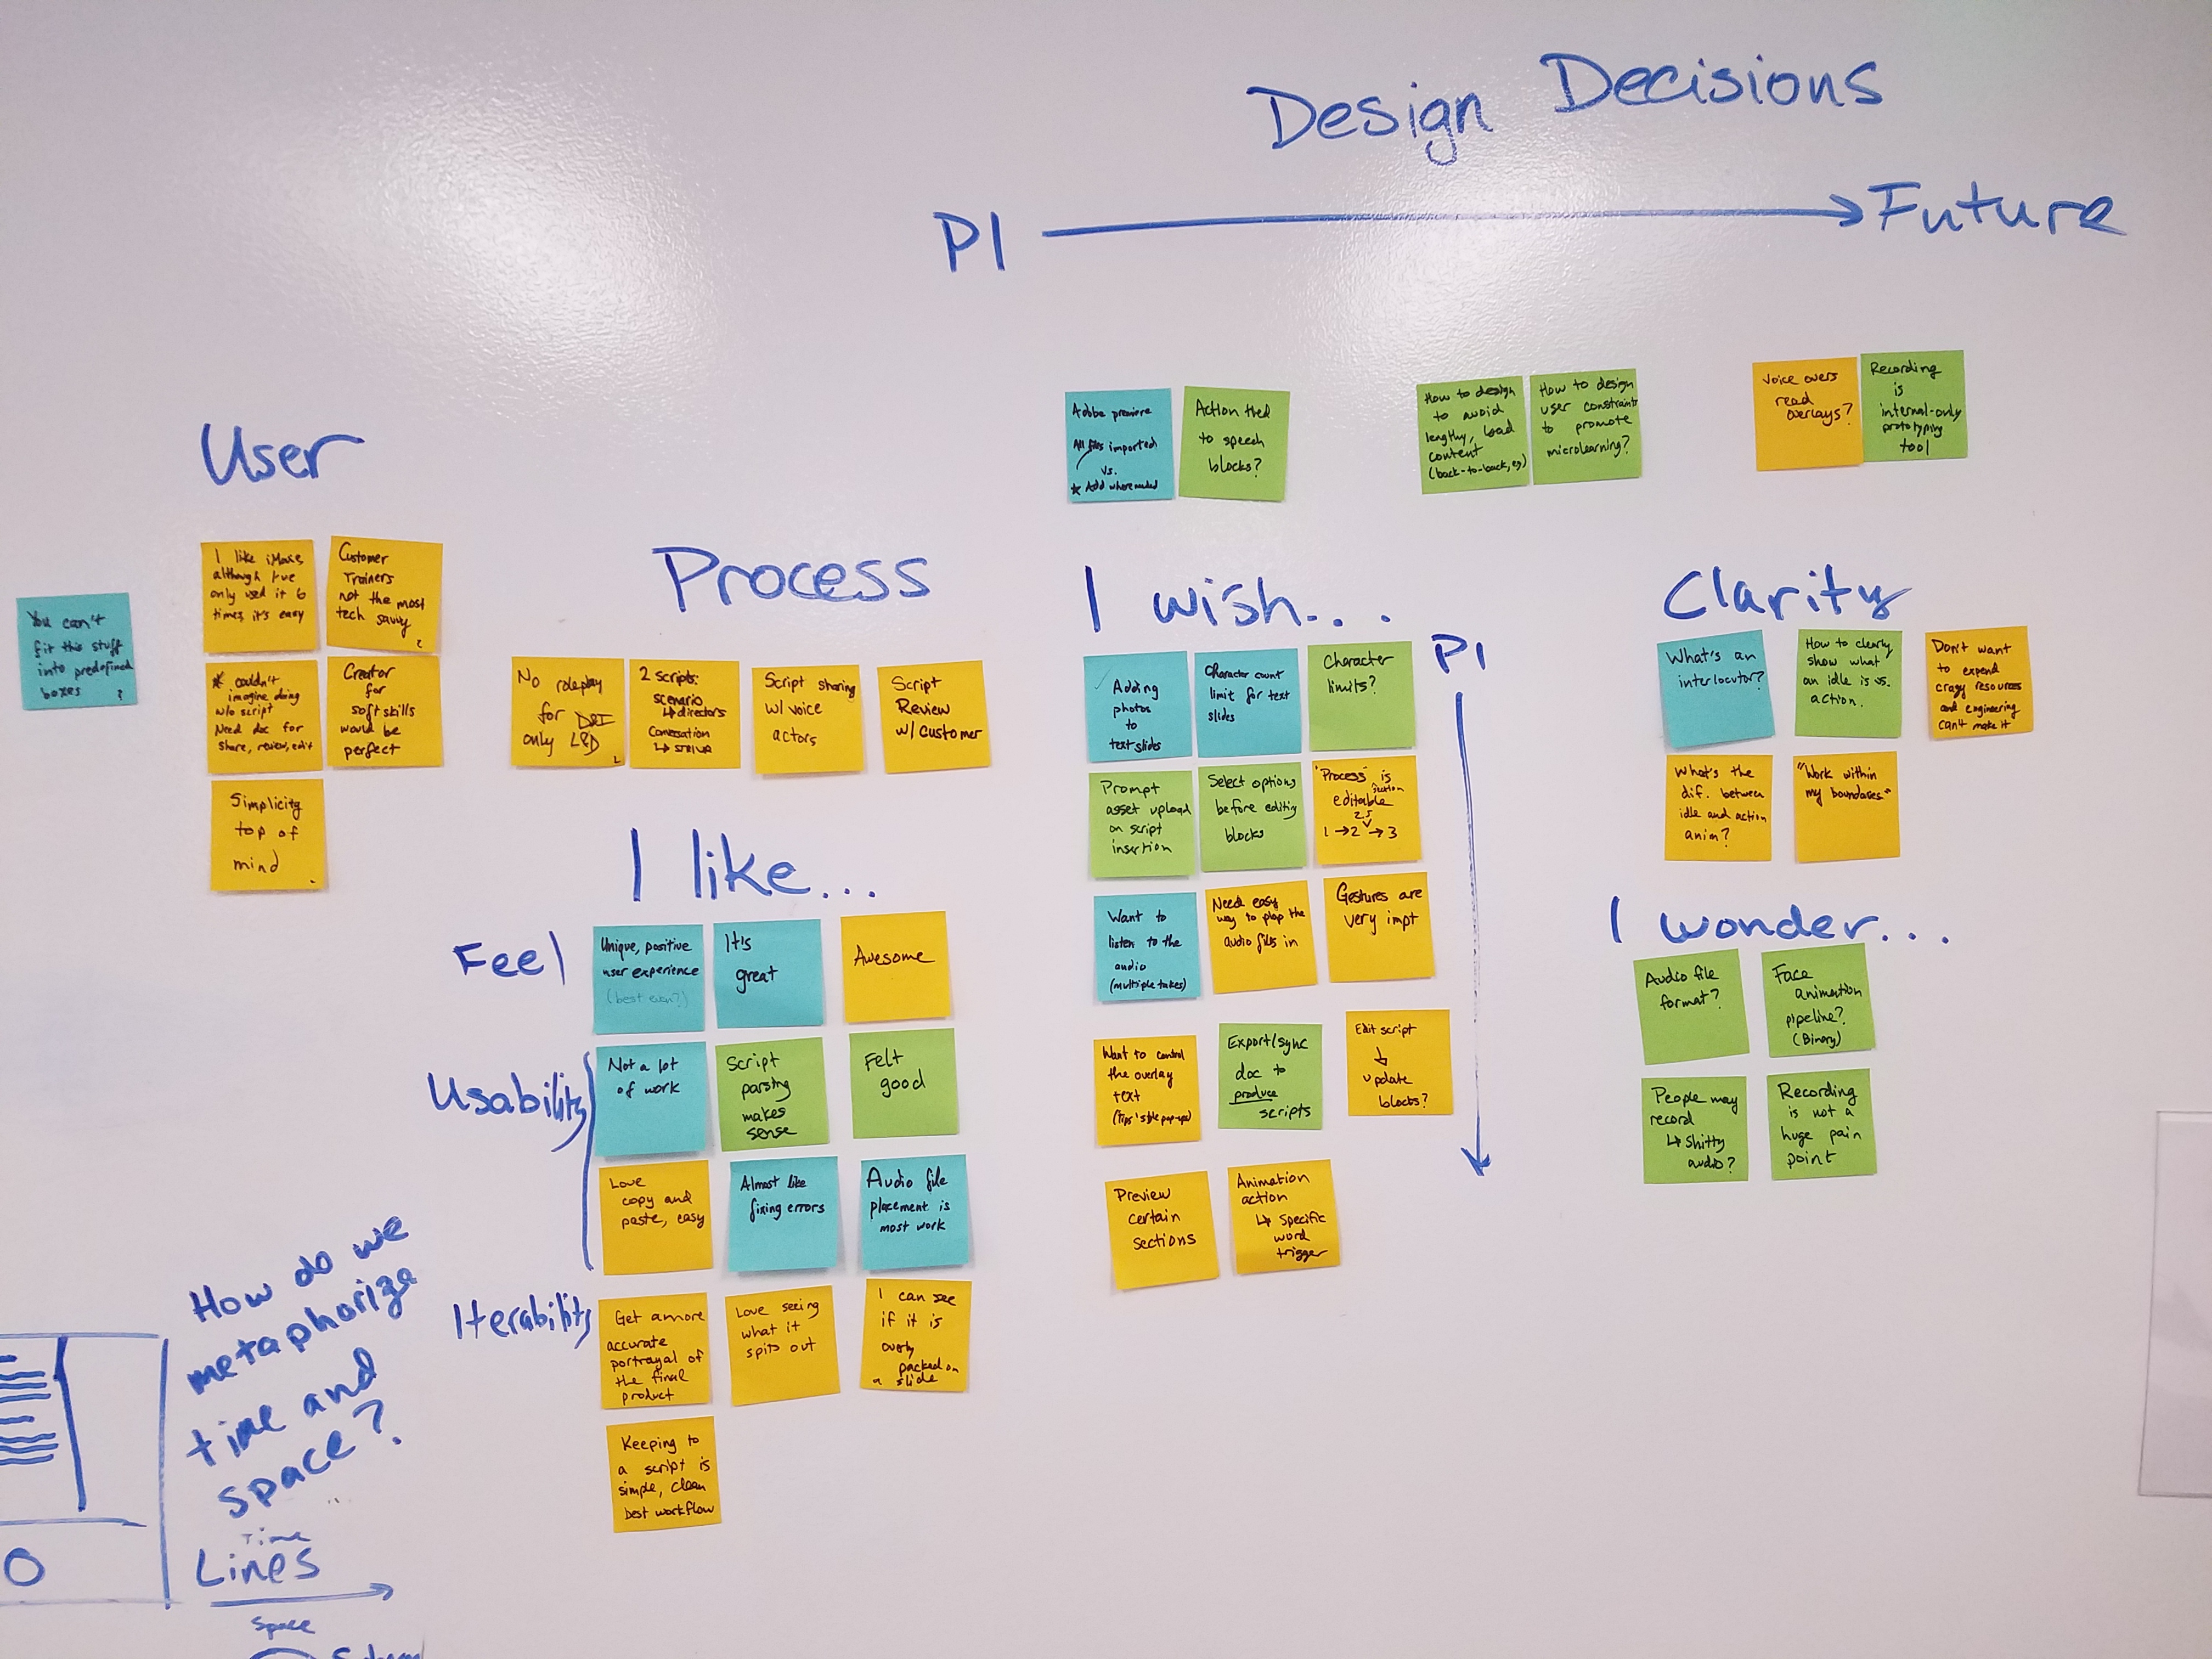 Design Decisions
P1
Future
Adobe premiere
All files imported
vs.
* Add where needed
Action tied
to speech
blocks?
How to design
to avoid
lengthy, load
content
(back-to-back, eg)
How to design
user constraints
to promote
microlearning?
Voice overs
read
overlays?
Recording
is
internal-only
prototyping
tool
User
You can't
fit this stuff
into predefined
boxes
I like iMovie
although I've
only used it 6
times, it's easy
Customer
Trainers
not the most
tech savvy
* couldn't
imagine doing
w/o script
Need doc for
share, review, edit
Creator
for
soft skills
would be
perfect
Simplicity
top of
mind
Process
No roleplay
for DDI
only L&D
2 scripts:
scenario
↳ directors
Conversation
↳
Script sharing
w/ voice
actors
Script
Review
w/ customer
I like...
Feel
Unique, positive
user experience
(best ever?)
It's
great
Awesome
Usability
Not a lot
of work
Script
parsing
makes
sense
Felt
good
Love
copy and
paste, easy
Almost like
fixing errors
Audio file
placement is
most work
Iterability
Get a more
accurate
portrayal of
the final
product
Love seeing
what it
spits out
I can see
if it is
overly
packed on
a slide
Keeping to
a script is
simple, clean
best workflow
I wish...
P1
Adding
photos
to
text slides
Character count
limit for text
slides
Character
limits?
Prompt
asset upload
on script
insertion
Select options
before editing
blocks
"Process" is
section
editable
2.5
1 → 2 → 3
Want to
listen to the
audio
(multiple takes)
Need easy
way to plop the
audio files in
Gestures are
very impt
Want to control
the overlay
text
(Tips' style pop-ups)
Export/sync
doc to
produce
scripts
Edit script
↓
update
blocks?
Preview
certain
sections
Animation
action
↳ specific
word
trigger
Clarity
What's an
interlocutor?
How to clearly
show what
an idle is vs.
action.
Don't want
to expend
crazy resources
and engineering
can't make it
What's the
dif. between
idle and action
anim?
"Work within
my boundaries"
I wonder...
Audio file
format?
Face
animation
pipeline?
(Binary)
People may
record
↳ shitty
audio?
Recording
is not a
huge pain
point
How do we
metaphorize
time and
space?
Time
Lines
Space